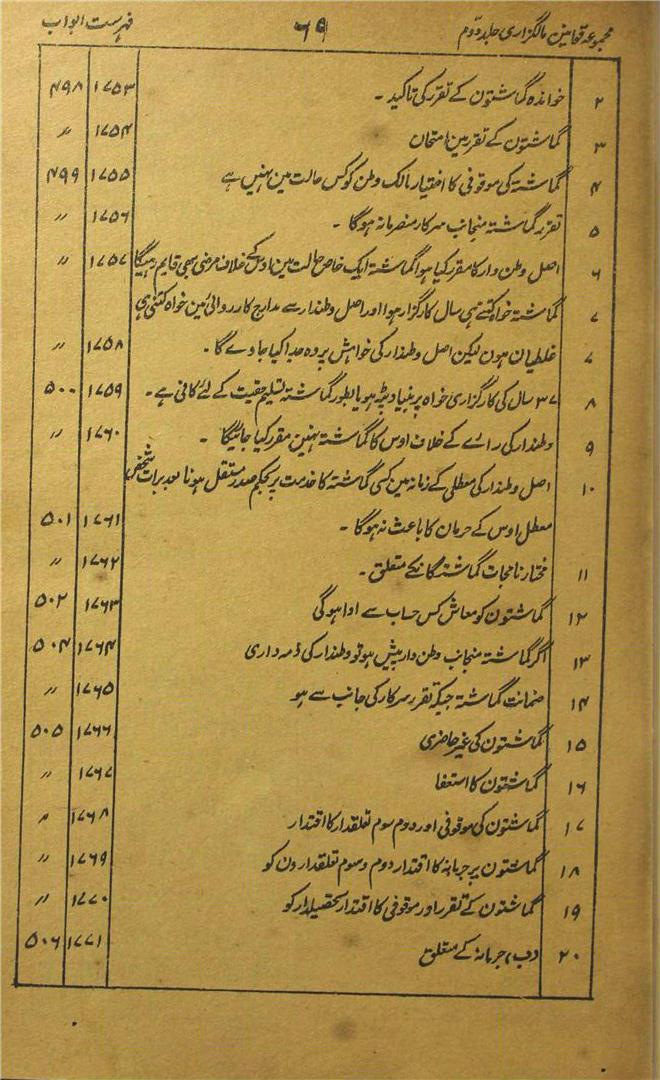 مجموعہ قوانین مالگزاری جلد دوم ۶۹ فہرست ابواب
۲ خواندہ گماشتون کے تقرر کی تاکید ۔ ۱۷۵۳ ۴۹۸
۳ گماشتون کے تقرر مین امتحان ۱۷۵۴ 〃
۴ گماشتہ کی موقوفی کا اختیار مالک وطن کو کس حالت مین نہین ہے ۱۷۵۵ ۴۹۹
۵ تقرر گماشتہ منجانب سرکار منصرمانہ ہوگا ۔ ۱۷۵۶ 〃
۶ اصل وطن دار کا مقرر کیا ہوا گماشتہ ایک خاص حالت مین اوس کے خلاف مرضی بھی قایم رہیگا ۱۷۵۷ 〃
۷ گماشتہ خواہ کتنے ہی سال کارگزار ہوا اور اصل وطندار سے مدارج کارروائی مین خواہ کتنی ہی
۷ غلطیان ہون لیکن اصل وطندار کی خواہش پر وہ جدا کیا جاوے گا ۔ ۱۷۵۸ 〃
۸ ۳۷ سال کی کارگزاری خواہ پر بنیاد پٹہ ہو یا بطور گماشتہ تسلیم حقیت کے لئے کافی ہے ۔ ۱۷۵۹ ۵۰۰
۹ وطندار کی رائے کے خلاف اوس کا گماشتہ نہین مقرر کیا جائیگا ۔ ۱۷۶۰ 〃
۱۰ اصل وطندار کی معطلی کے زمانہ مین کسی گماشتہ کا خدمت پر بحکم صدر مستقل ہونا بعد براءت شخص
معطل اوس کے حرمان کا باعث نہ ہوگا ۔ ۱۷۶۱ ۵۰۱
۱۱ مختار نامجات گماشتگان کے متعلق ۔ ۱۷۶۲ 〃
۱۲ گماشتون کو معاش کس حساب سے ادا ہوگی ۱۷۶۳ ۵۰۲
۱۳ اگر گماشتہ منجانب وطن دار پیش ہو تو وطندار کی ذمہ داری ۱۷۶۴ ۵۰۴
۱۴ ضمانت گماشتہ جبکہ تقرر سرکار کی جانب سے ہو ۱۷۶۵ 〃
۱۵ گماشتون کی غیر حاضری ۱۷۶۶ ۵۰۵
۱۶ گماشتون کا استعفا ۱۷۶۷ 〃
۱۷ گماشتون کی موقوفی اور دوم سوم تعلقدار کا اقتدار ۱۷۶۸ 〃
۱۸ گماشتون پر جرمانہ کا اقتدار دوم و سوم تعلقدارون کو ۱۷۶۹ 〃
۱۹ گماشتون کے تقرر اور موقوفی کا اقتدار تحصیلدار کو ۱۷۷۰ 〃
۲۰ (ب) جرمانہ کے متعلق ۱۷۷۱ ۵۰۶